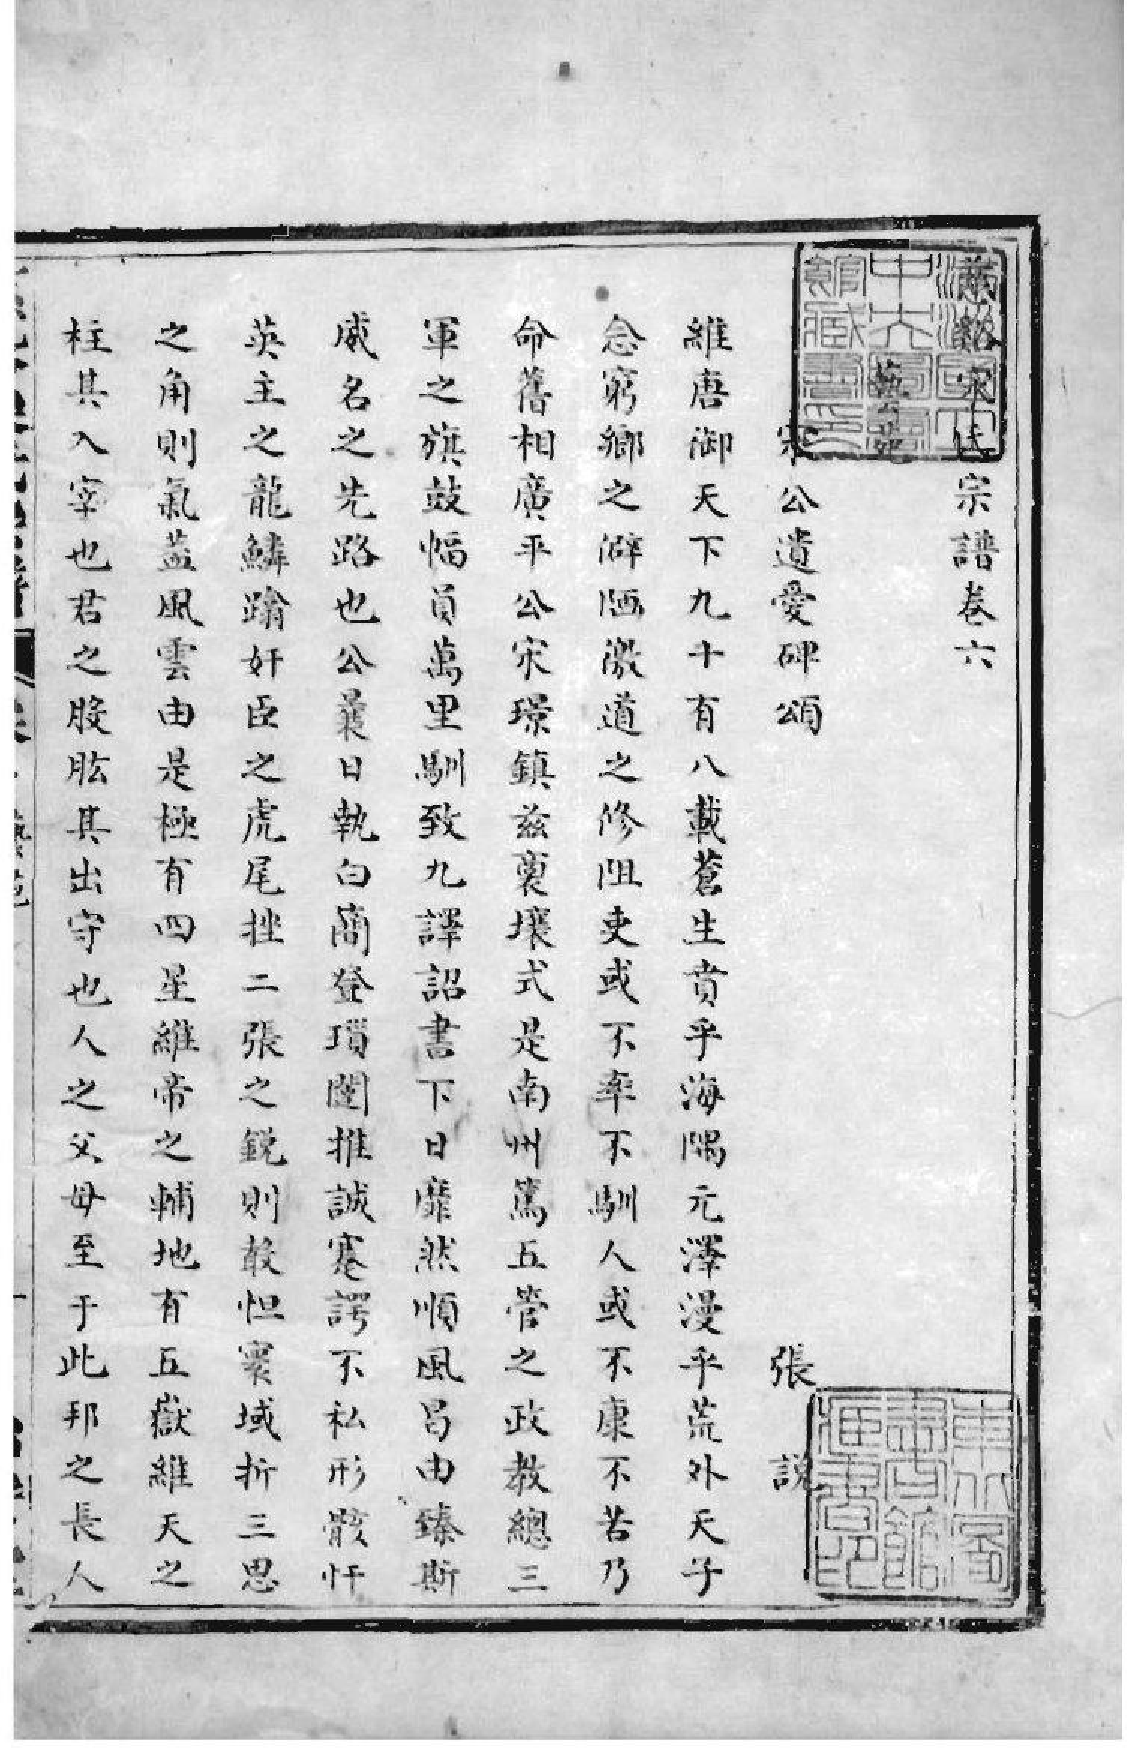 宋氏宗譜卷六
藝苑
宋公遺愛碑頌
張說
維唐御天下九十有八載蒼生賁乎海隅元澤漫乎荒外天子
念窮鄉之僻陋激道之修阻吏或不率不馴人或不康不若乃
命舊相廣平公宋璟鎮茲裔壤式是南州篤五管之政教總三
軍之旗鼓幅員萬里馴致九譯詔書下日靡然順風曷由臻斯
威名之先路也公曩日執白簡登瑣闈推誠蹇諤不私形骸忤
英主之龍鱗蹋奸臣之虎尾挫二張之銳則敢怛寰域折三思
之角則氣蓋風雲由是極有四星維帝之輔地有五嶽維天之
柱其入宰也君之股肱其出守也人之父母至于此邦之長人